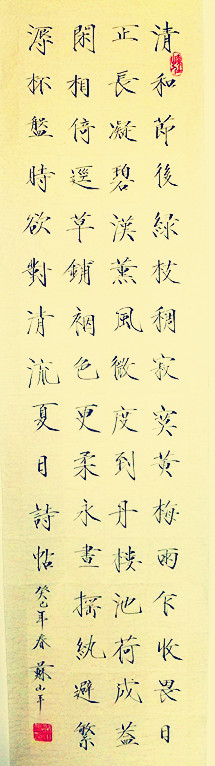 清和節後綠枝稠寂寞黃梅雨乍收畏日
正長凝碧漢薰風微度到丹樓池荷成蓋
閑相倚逕草鋪裀色更柔永晝搖紈避繁
溽杯盤時欲對清流夏日詩帖 癸巳年春 蘇山